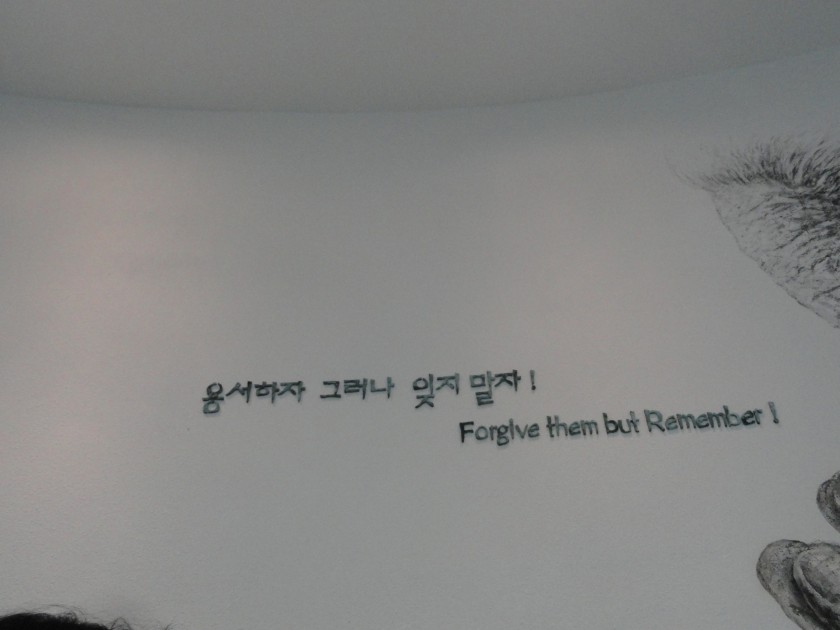 용서하자 그러나 잊지 말자!
Forgive them but Remember!